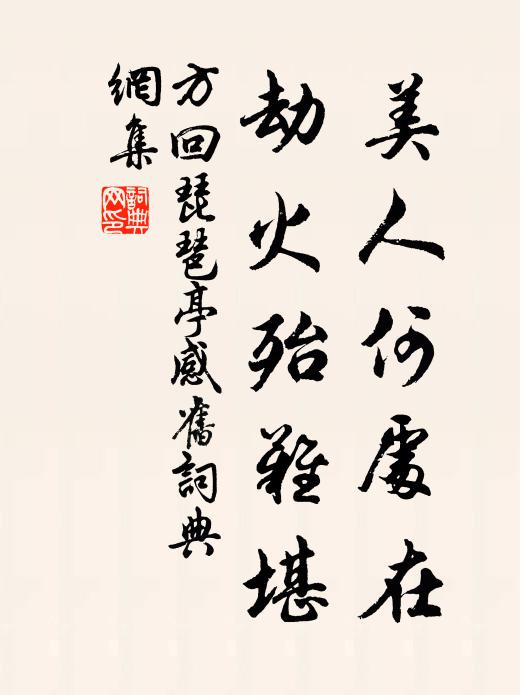 美人何處在
劫火殆難堪
方回琵琶亭感舊詞典
網集
詞典網印